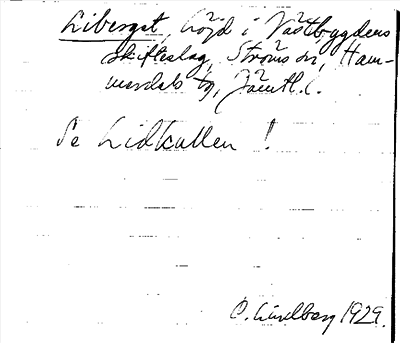 Liberget, höjd i Västbygdens
skifteslag, Ströms sn, Ham-
merdals tg, Jämtl. l.
Se Lidkullen!
O. Lundberg 1929.